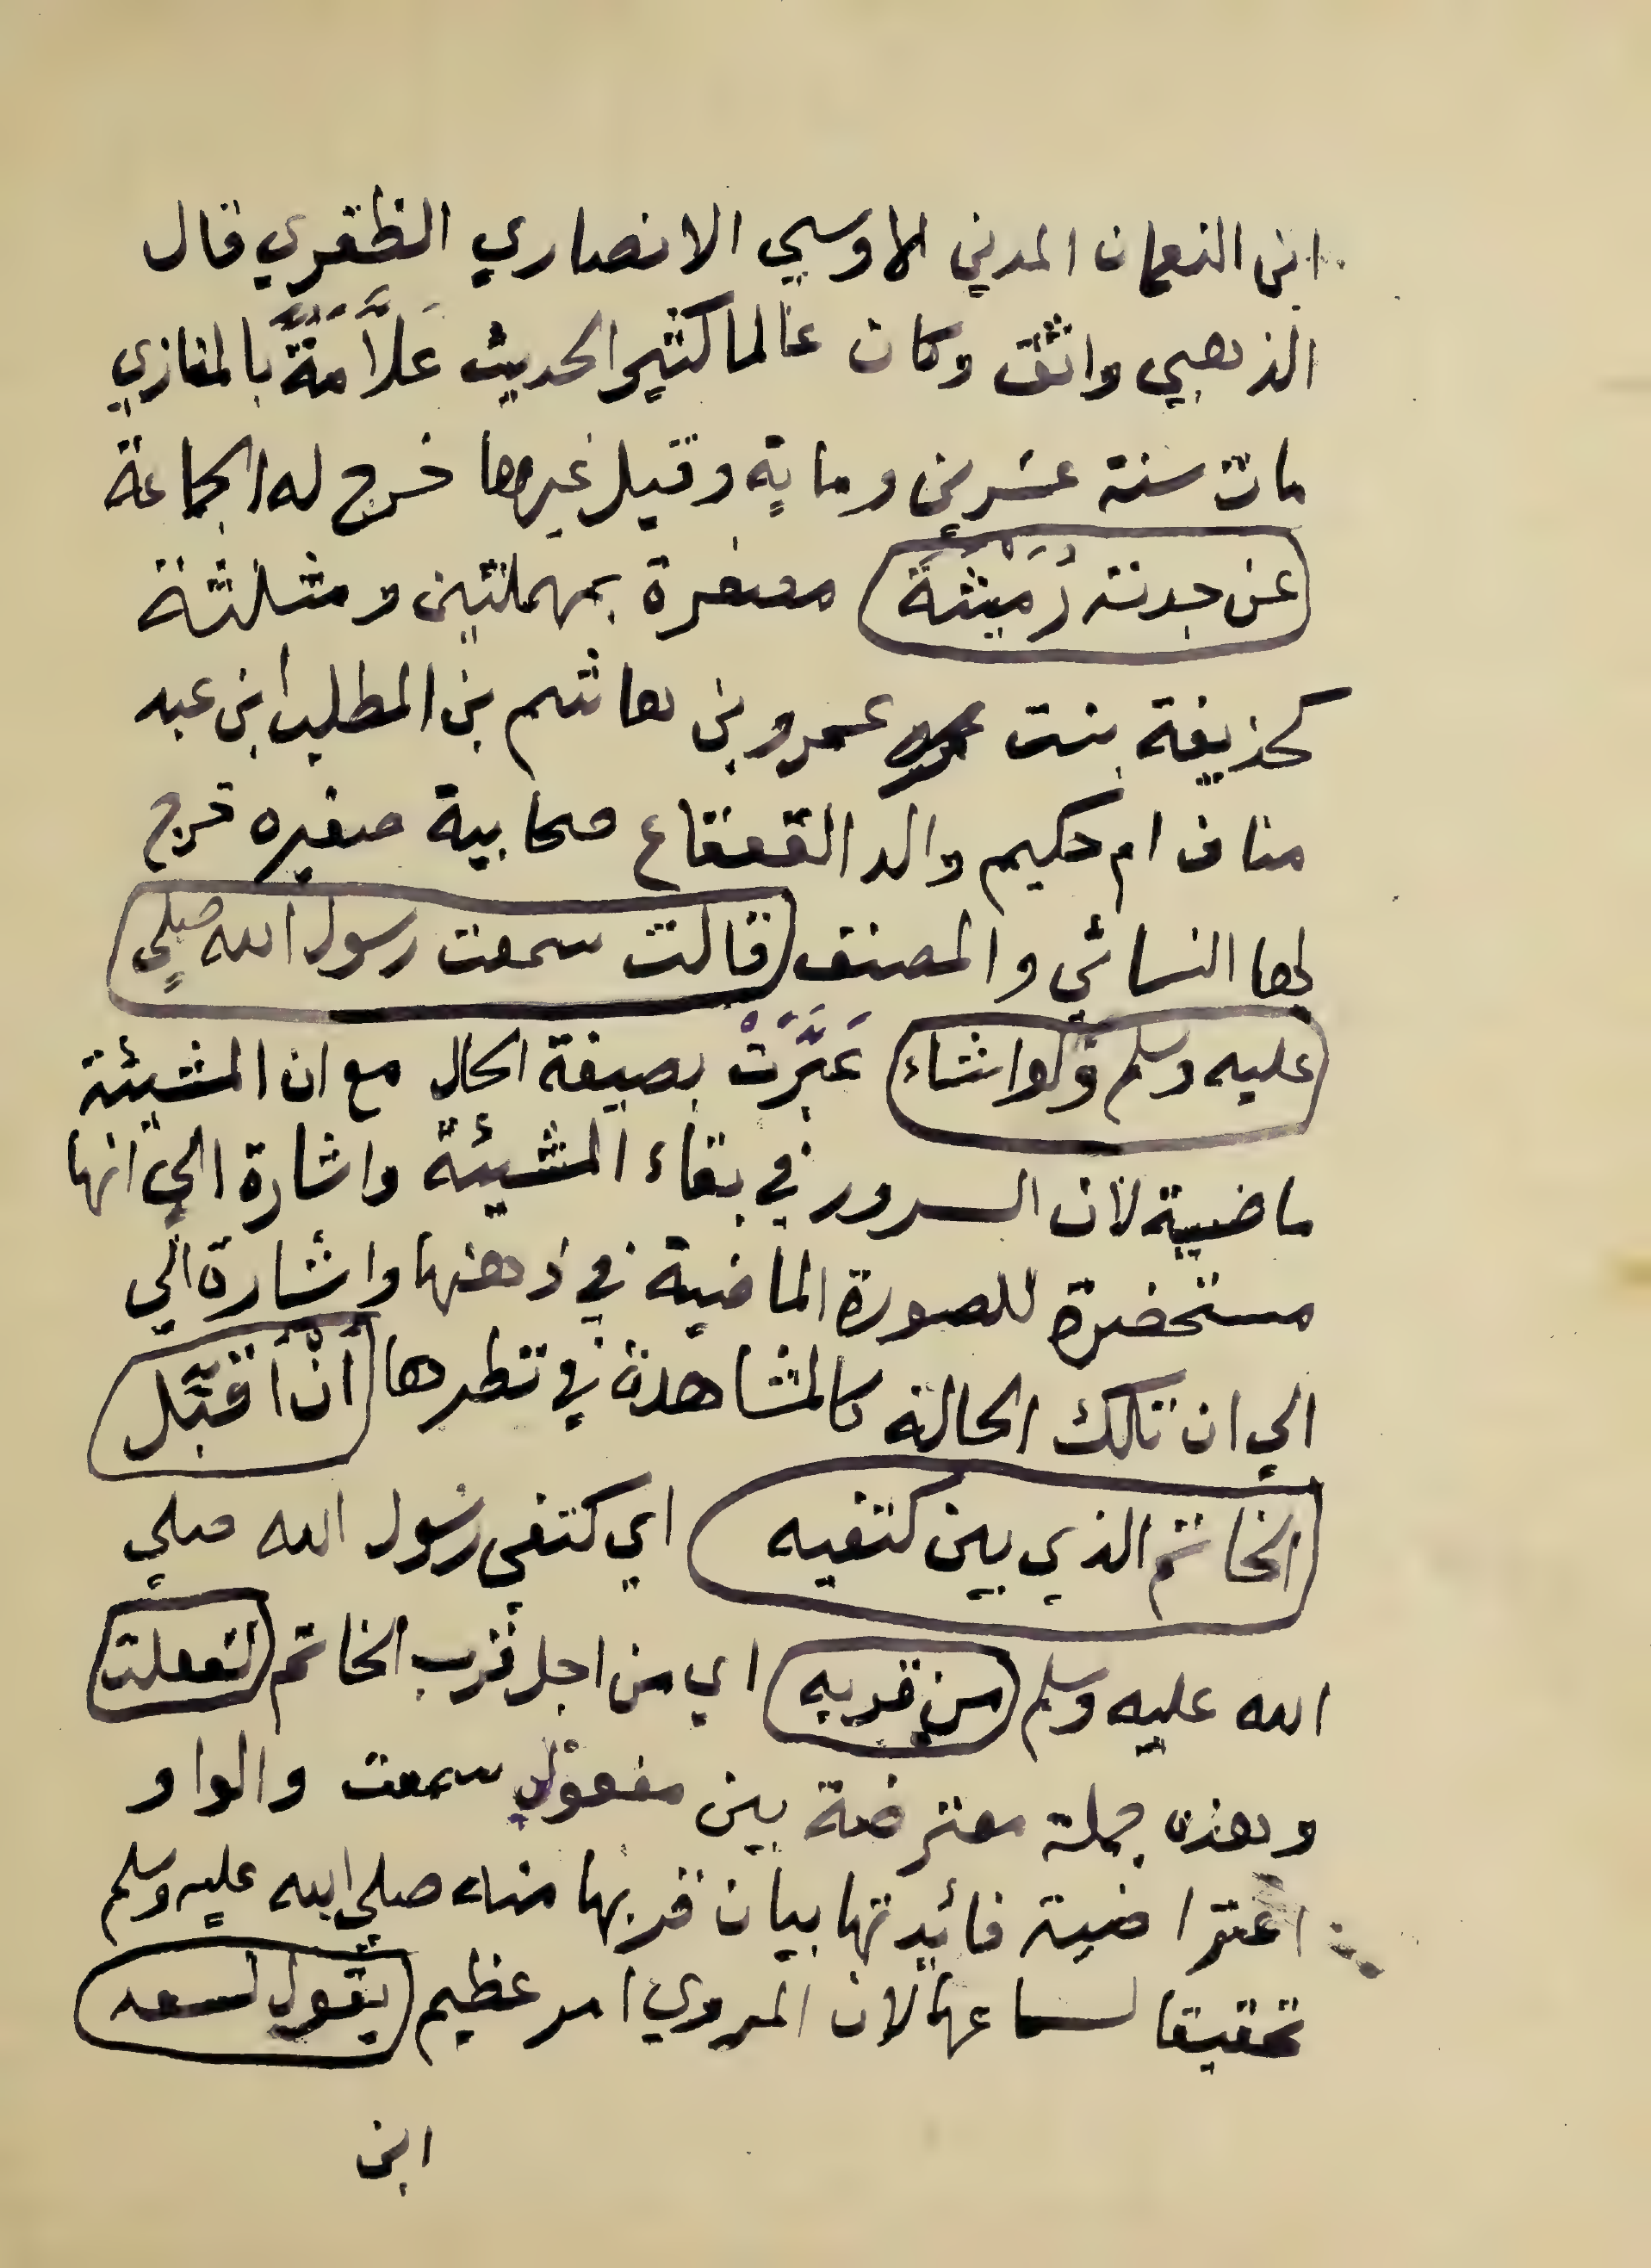 ابن النعمان المدني الاوسي الانصاري الظفري قال
الذهبي واثق وكان عالما كثير الحديث عَلَّامَةً بالمغازي
مات سنة عشرين وماية وقيل غيرها خرج له الجماعة
عن جدته رُمَيْثَةَ مصغرة بمهملتين ومثلثة
كحذيفة بنت عمرو بن هاشم بن المطلب ابن عبد
مناف ام حكيم والد القعقاع صحابية صغيره خرج
لها النسائي والمصنف قالت سمعت رسول الله صلي
عليه وسلم ولواشاء عَبَّرَتْ بصيغة الحال مع ان المشيئة
ماضية لان السرور في بقاء المشيئة واشارة الي انها
مستحضرة للصورة الماضية في ذهنها واشارة الي
الي ان تلك الحالة كالمشاهدة في نظرها أَنْ أُقَبِّل
الخاتم الذي بين كتفيه اي كتفي رسول الله صلي
الله عليه وسلم من قربه اي من اجل قرب الخاتم لفعلت
وهذه جملة معترضة بين مفعول سمعت والواو
اعتراضية فائدتها بيان قربها منه صلي الله عليه وسلم
تحقيقا لسماعها لان المروي امر عظيم يقول لسعد
ابن